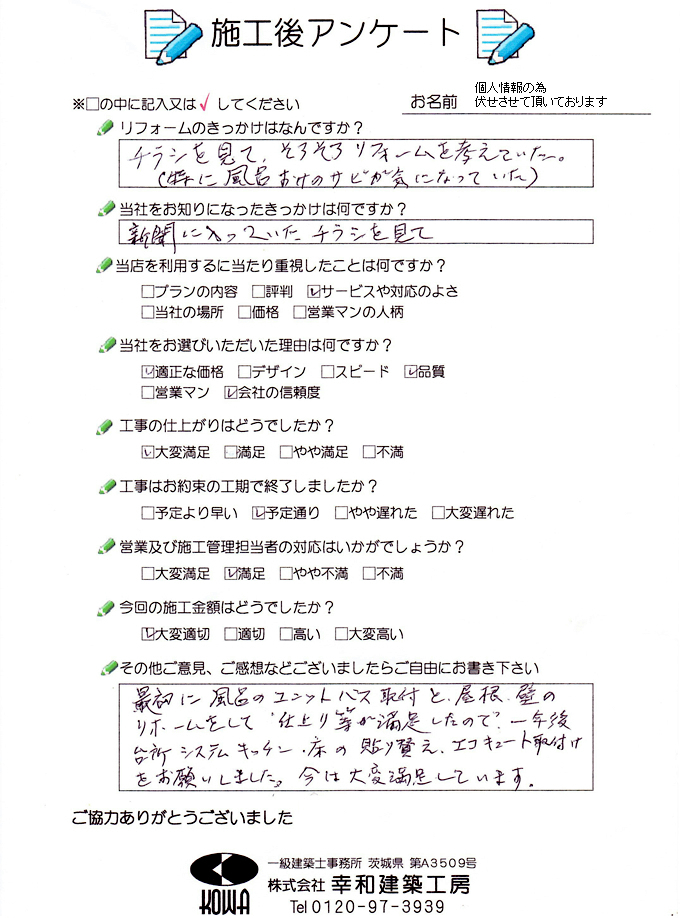 施工後アンケート
※□の中に記入又は✓してください
お名前 個人情報の為
伏せさせて頂いております
リフォームのきっかけはなんですか？
チラシを見て、そろそろリフォームを考えていた。
(特に風呂おけのサビが気になっていた)
当社をお知りになったきっかけは何ですか？
新聞に入っていたチラシを見て
当店を利用するに当たり重視したことは何ですか？
□プランの内容 □評判 ☑サービスや対応のよさ
□当社の場所 □価格 □営業マンの人柄
当社をお選びいただいた理由は何ですか？
☑適正な価格 □デザイン □スピード ☑品質
□営業マン ☑会社の信頼度
工事の仕上がりはどうでしたか？
☑大変満足 □満足 □やや満足 □不満
工事はお約束の工期で終了しましたか？
□予定より早い ☑予定通り □やや遅れた □大変遅れた
営業及び施工管理担当者の対応はいかがでしょうか？
□大変満足 ☑満足 □やや不満 □不満
今回の施工金額はどうでしたか？
☑大変適切 □適切 □高い □大変高い
その他ご意見、ご感想などございましたらご自由にお書き下さい
最初に風呂のユニットバス取付と、屋根、壁の
リホームをして、仕上り等が満足したので、一年後
台所システムキッチン・床の貼り替え、エコキュート取付け
をお願いしました。今は大変満足しています。
ご協力ありがとうございました
一級建築士事務所 茨城県 第A3509号
KOWA 株式会社 幸和建築工房
Tel 0120-97-3939